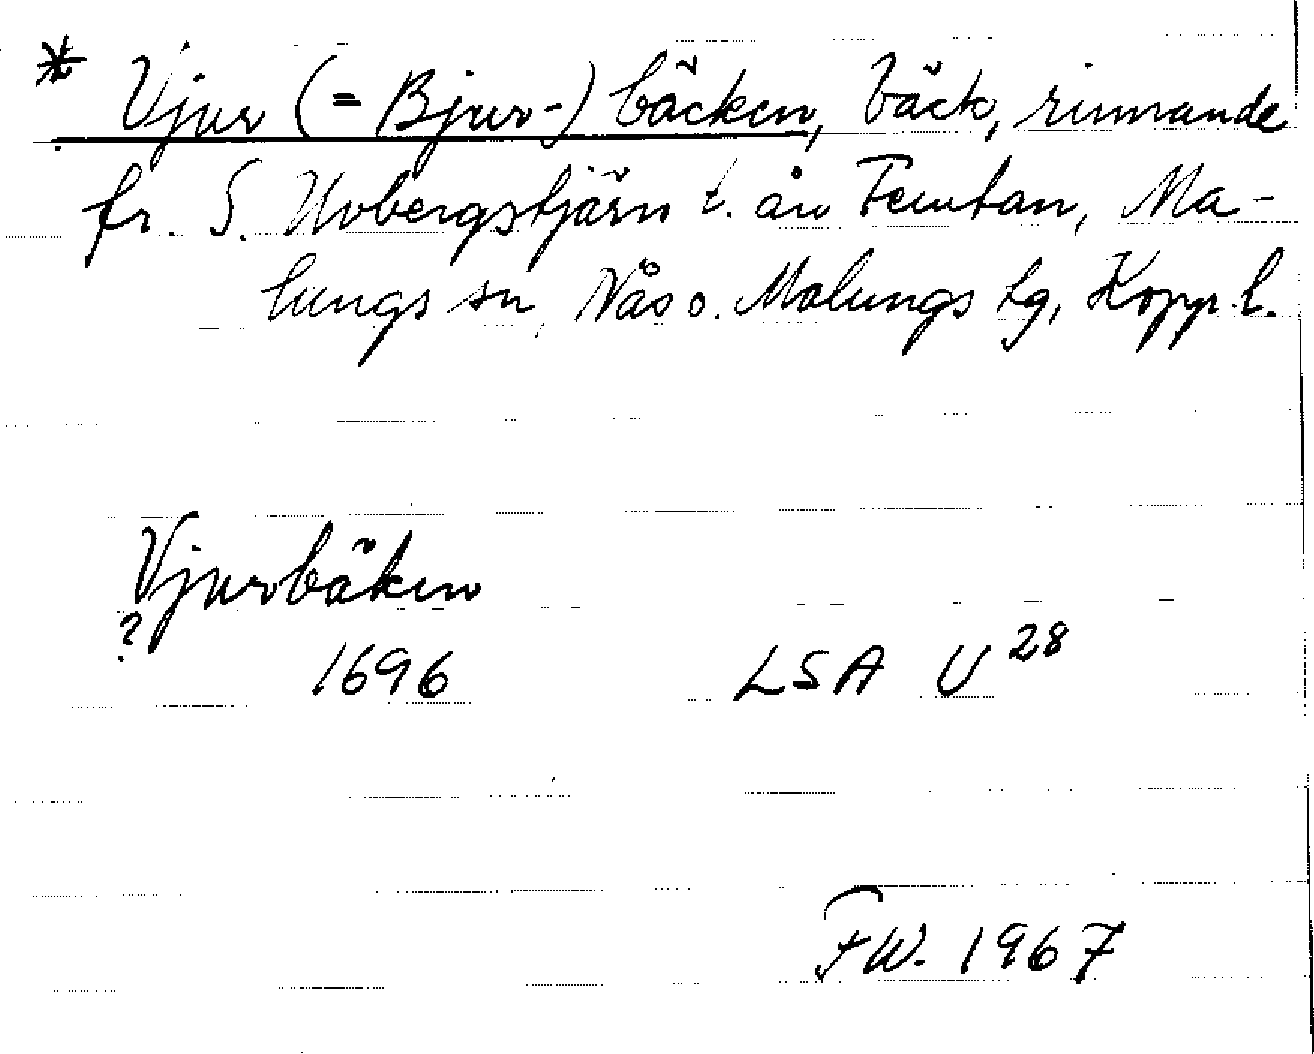 * Vjur (= Bjur-) bäcken, bäck, rinnande
fr. S. Uvbergstjärn t. ån Femtan, Ma-
lungs sn, Nås o. Malungs tg, Kopp. l.
Vjurbäken
?
1696 LSA U 28
FW. 1967